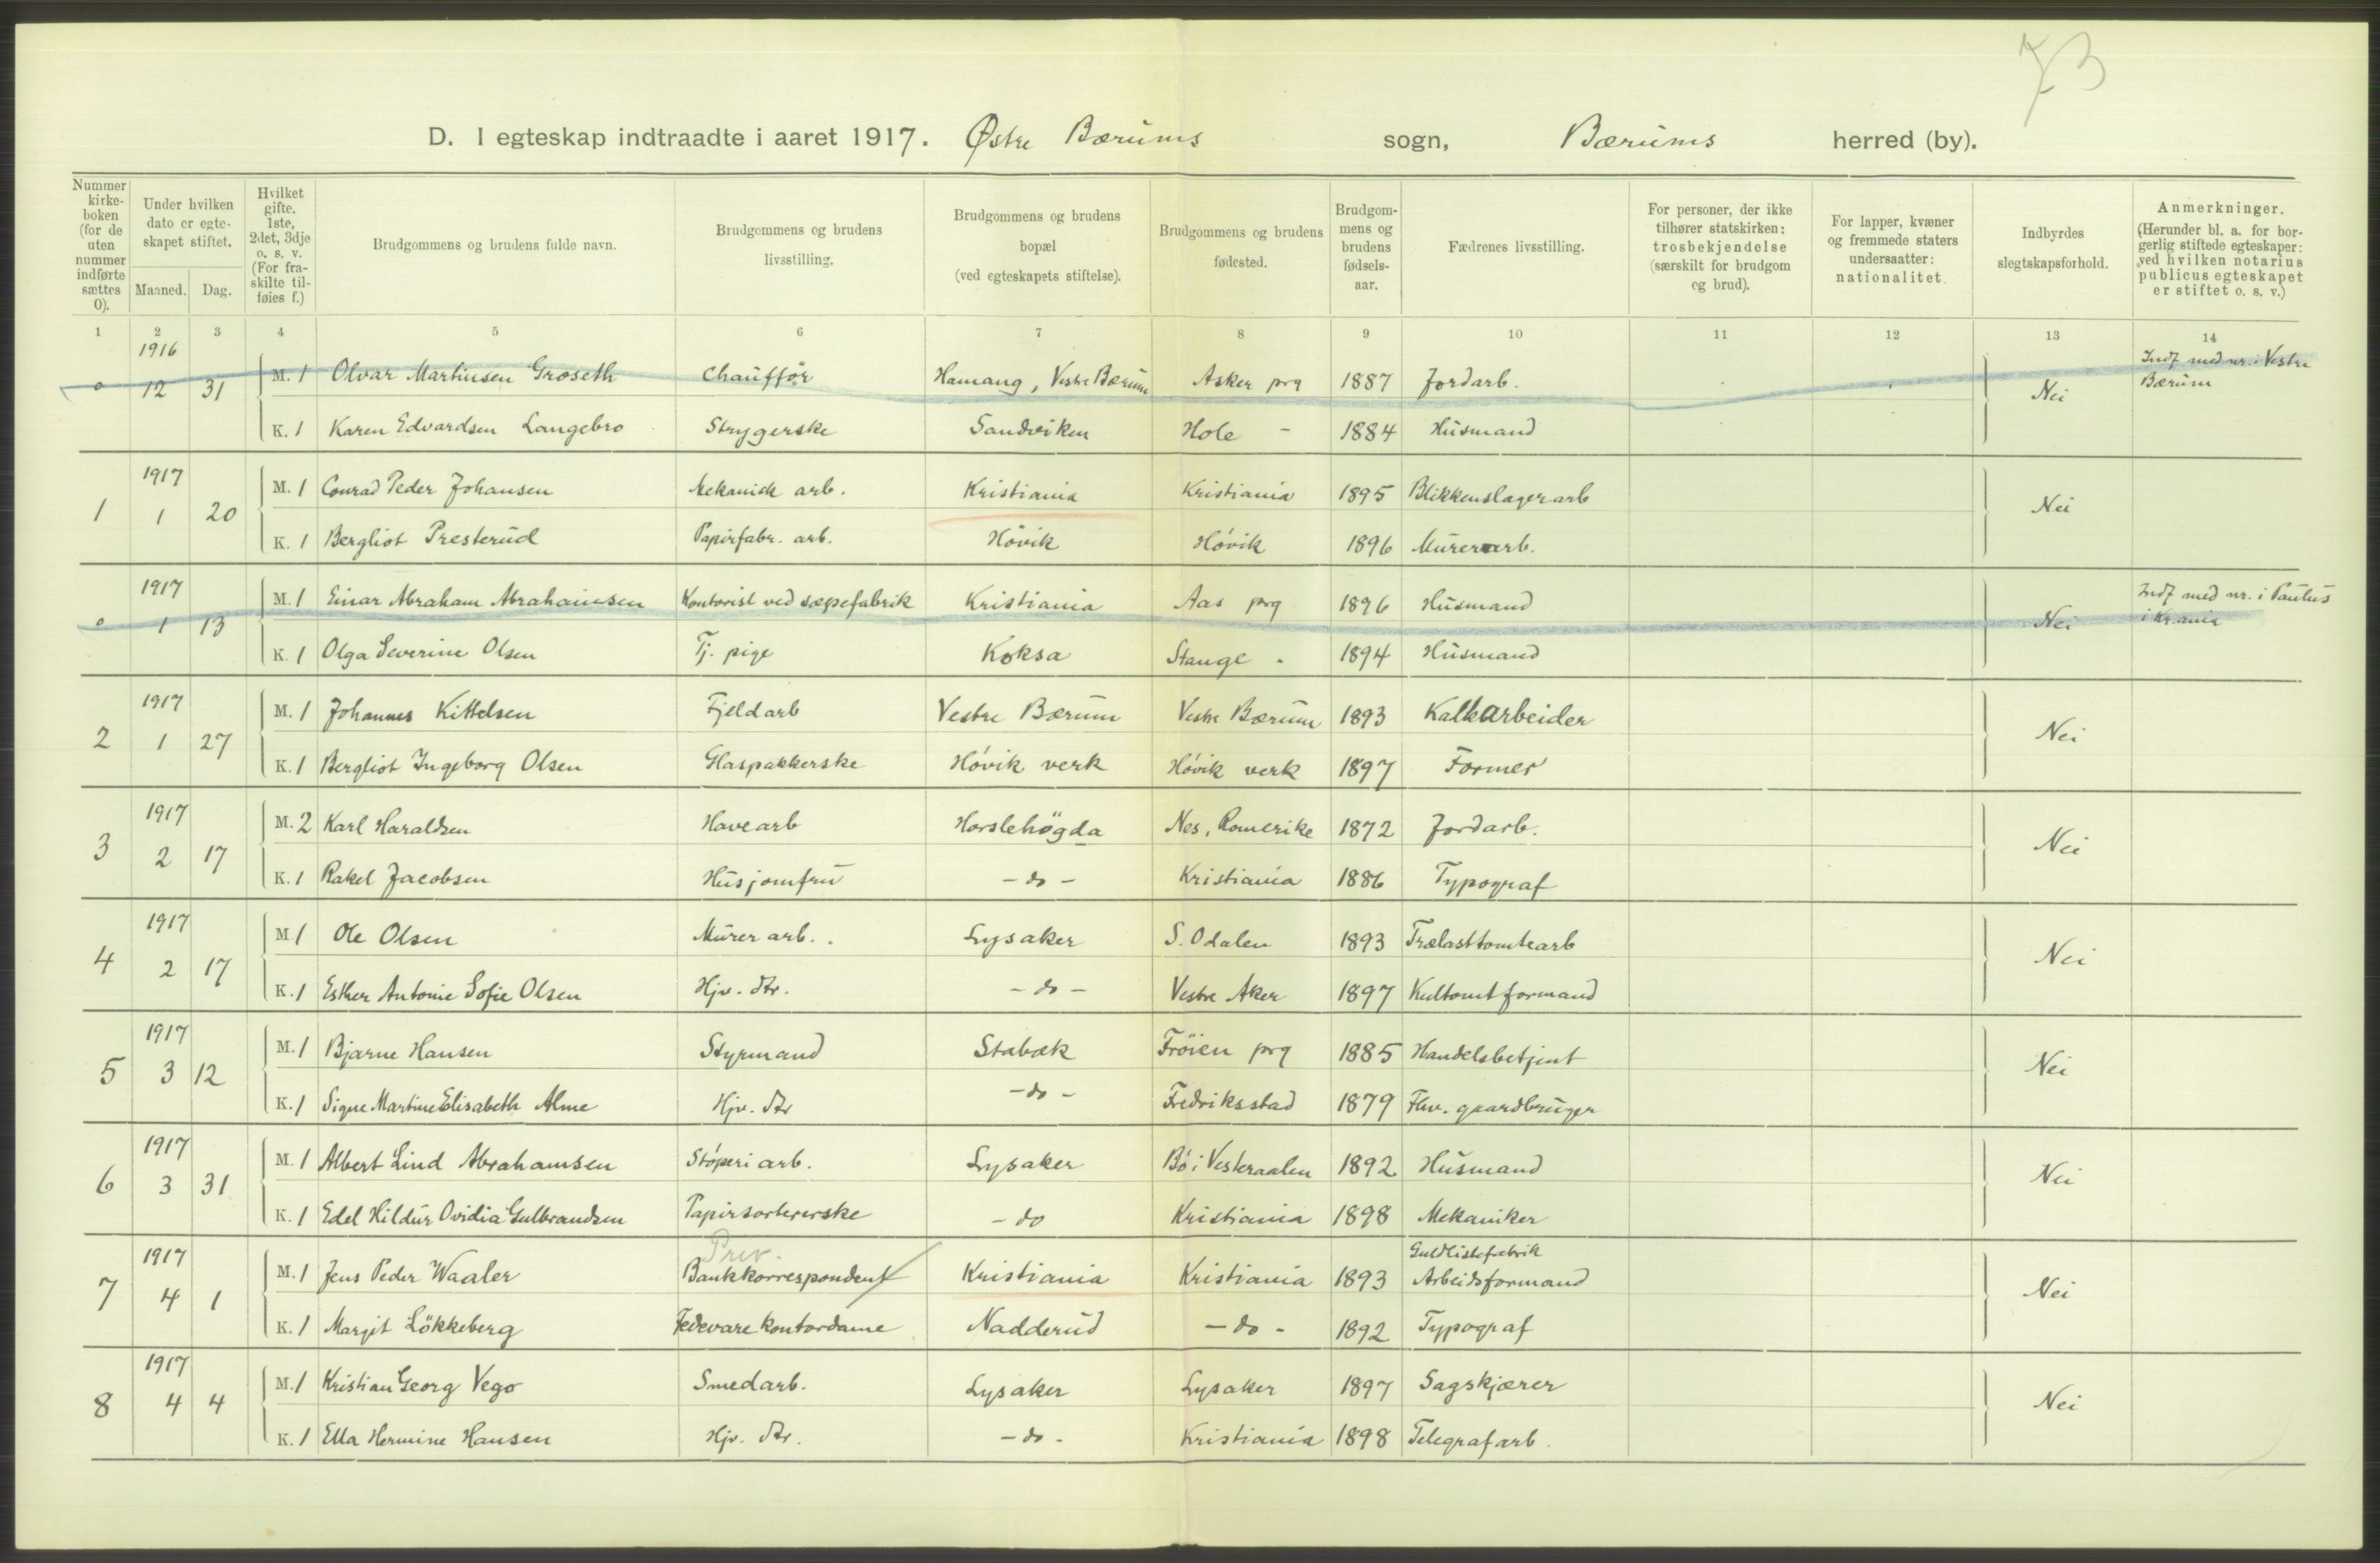 73
D. I egteskap indtraadte i aaret 1917. Østre Bærums sogn, Bærums herred (by).
Nummer kirke-boken (for de uten nummer indførte sættes 0).
Under hvilken dato er egte-skapet stiftet.
Maaned. Dag.
Hvilket gifte. 1ste, 2det, 3dje o. s. v. (For fra-skilte til-føies f.)
Brudgommens og brudens fulde navn.
Brudgommens og brudens livsstilling.
Brudgommens og brudens bopæl (ved egteskapets stiftelse).
Brudgommens og brudens fødested.
Brudgom-mens og brudens fødsels-aar.
Fædrenes livsstilling.
For personer, der ikke tilhører statskirken: trosbekjendelse (særskilt for brudgom og brud).
For lapper, kvæner og fremmede staters undersaatter: nationalitet.
Indbyrdes slegtskapsforhold.
Anmerkninger. (Herunder bl. a. for bor-gerlig stiftede egteskaper: ved hvilken notarius publicus egteskapet er stiftet o. s. v.)
1 2 3 4 5 6 7 8 9 10 11 12 13 14
1916
0 12 31 M. 1 Olvar Martinsen Groseth Chauffør Hamang, Vestre Bærum Asker prg 1887 Jordarb. Nei Indf med nr. i Vestre Bærum
K. 1 Karen Edvardsen Langebro Strygerske Sandviken Hole - 1884 Husmand
1917
1 1 20 M. 1 Conrad Peder Johansen Mekanick arb. Kristiania Kristiania 1895 Blikkenslagerarb Nei
K. 1 Bergliot Presterud Papirfabr. arb. Høvik Høvik 1896 Murerarb.
1917
0 1 13 M. 1 Einar Abraham Abrahamsen Kontorist ved sæpefabrik Kristiania Aas prg 1896 Husmand Nei Indf med nr. i Paulus i Kr.ania
K. 1 Olga Severine Olsen Tj. pige Koksa Stange - 1894 Husmand
1917
2 1 27 M. 1 Johannes Kittelsen Fjeldarb Vestre Bærum Vestre Bærum 1893 Kalkarbeider Nei
K. 1 Bergliot Ingeborg Olsen Glaspakkerske Høvik verk Høvik verk 1897 Former
1917
3 2 17 M. 2 Karl Haraldsen Havearb Horslehögda Nes, Romerike 1872 Jordarb. Nei
K. 1 Rakel Jacobsen Husjomfru - do - Kristiania 1886 Typograf
1917
4 2 17 M. 1 Ole Olsen Murer arb. Lysaker S. Odalen 1893 Trælasttomtearb Nei
K. 1 Esther Antonie Sofie Olsen Hjv. dtr. - do - Vestre Aker 1897 Kultomtformand
1917
5 3 12 M. 1 Bjarne Hansen Styrmand Stabæk Frøien prg 1885 Handelsbetjent Nei
K. 1 Signe Martine Elisabeth Alme Hjv. dtr - do - Fredriksstad 1879 Fhv. gaardbruger
1917
6 3 31 M. 1 Albert Lind Abrahamsen Støperi arb. Lysaker Bö i Vesteraalen 1892 Husmand Nei
K. 1 Edel Hildur Ovidia Gulbrandsen Papirsortererske - do Kristiania 1898 Mekaniker
1917
7 4 1 M. 1 Jens Peder Waaler Priv. Bankkorrespondent Kristiania Kristiania 1893 Guldlistefabrik Arbeidsformand Nei
K. 1 Margit Lökkeberg Fedevare kontordame Nadderud - do - 1892 Typograf
1917
8 4 4 M. 1 Kristian Georg Vego Smedarb. Lysaker Lysaker 1897 Sagskjærer Nei
K. 1 Ella Hermine Hansen Hjv. dtr. - do - Kristiania 1898 Telegrafarb.